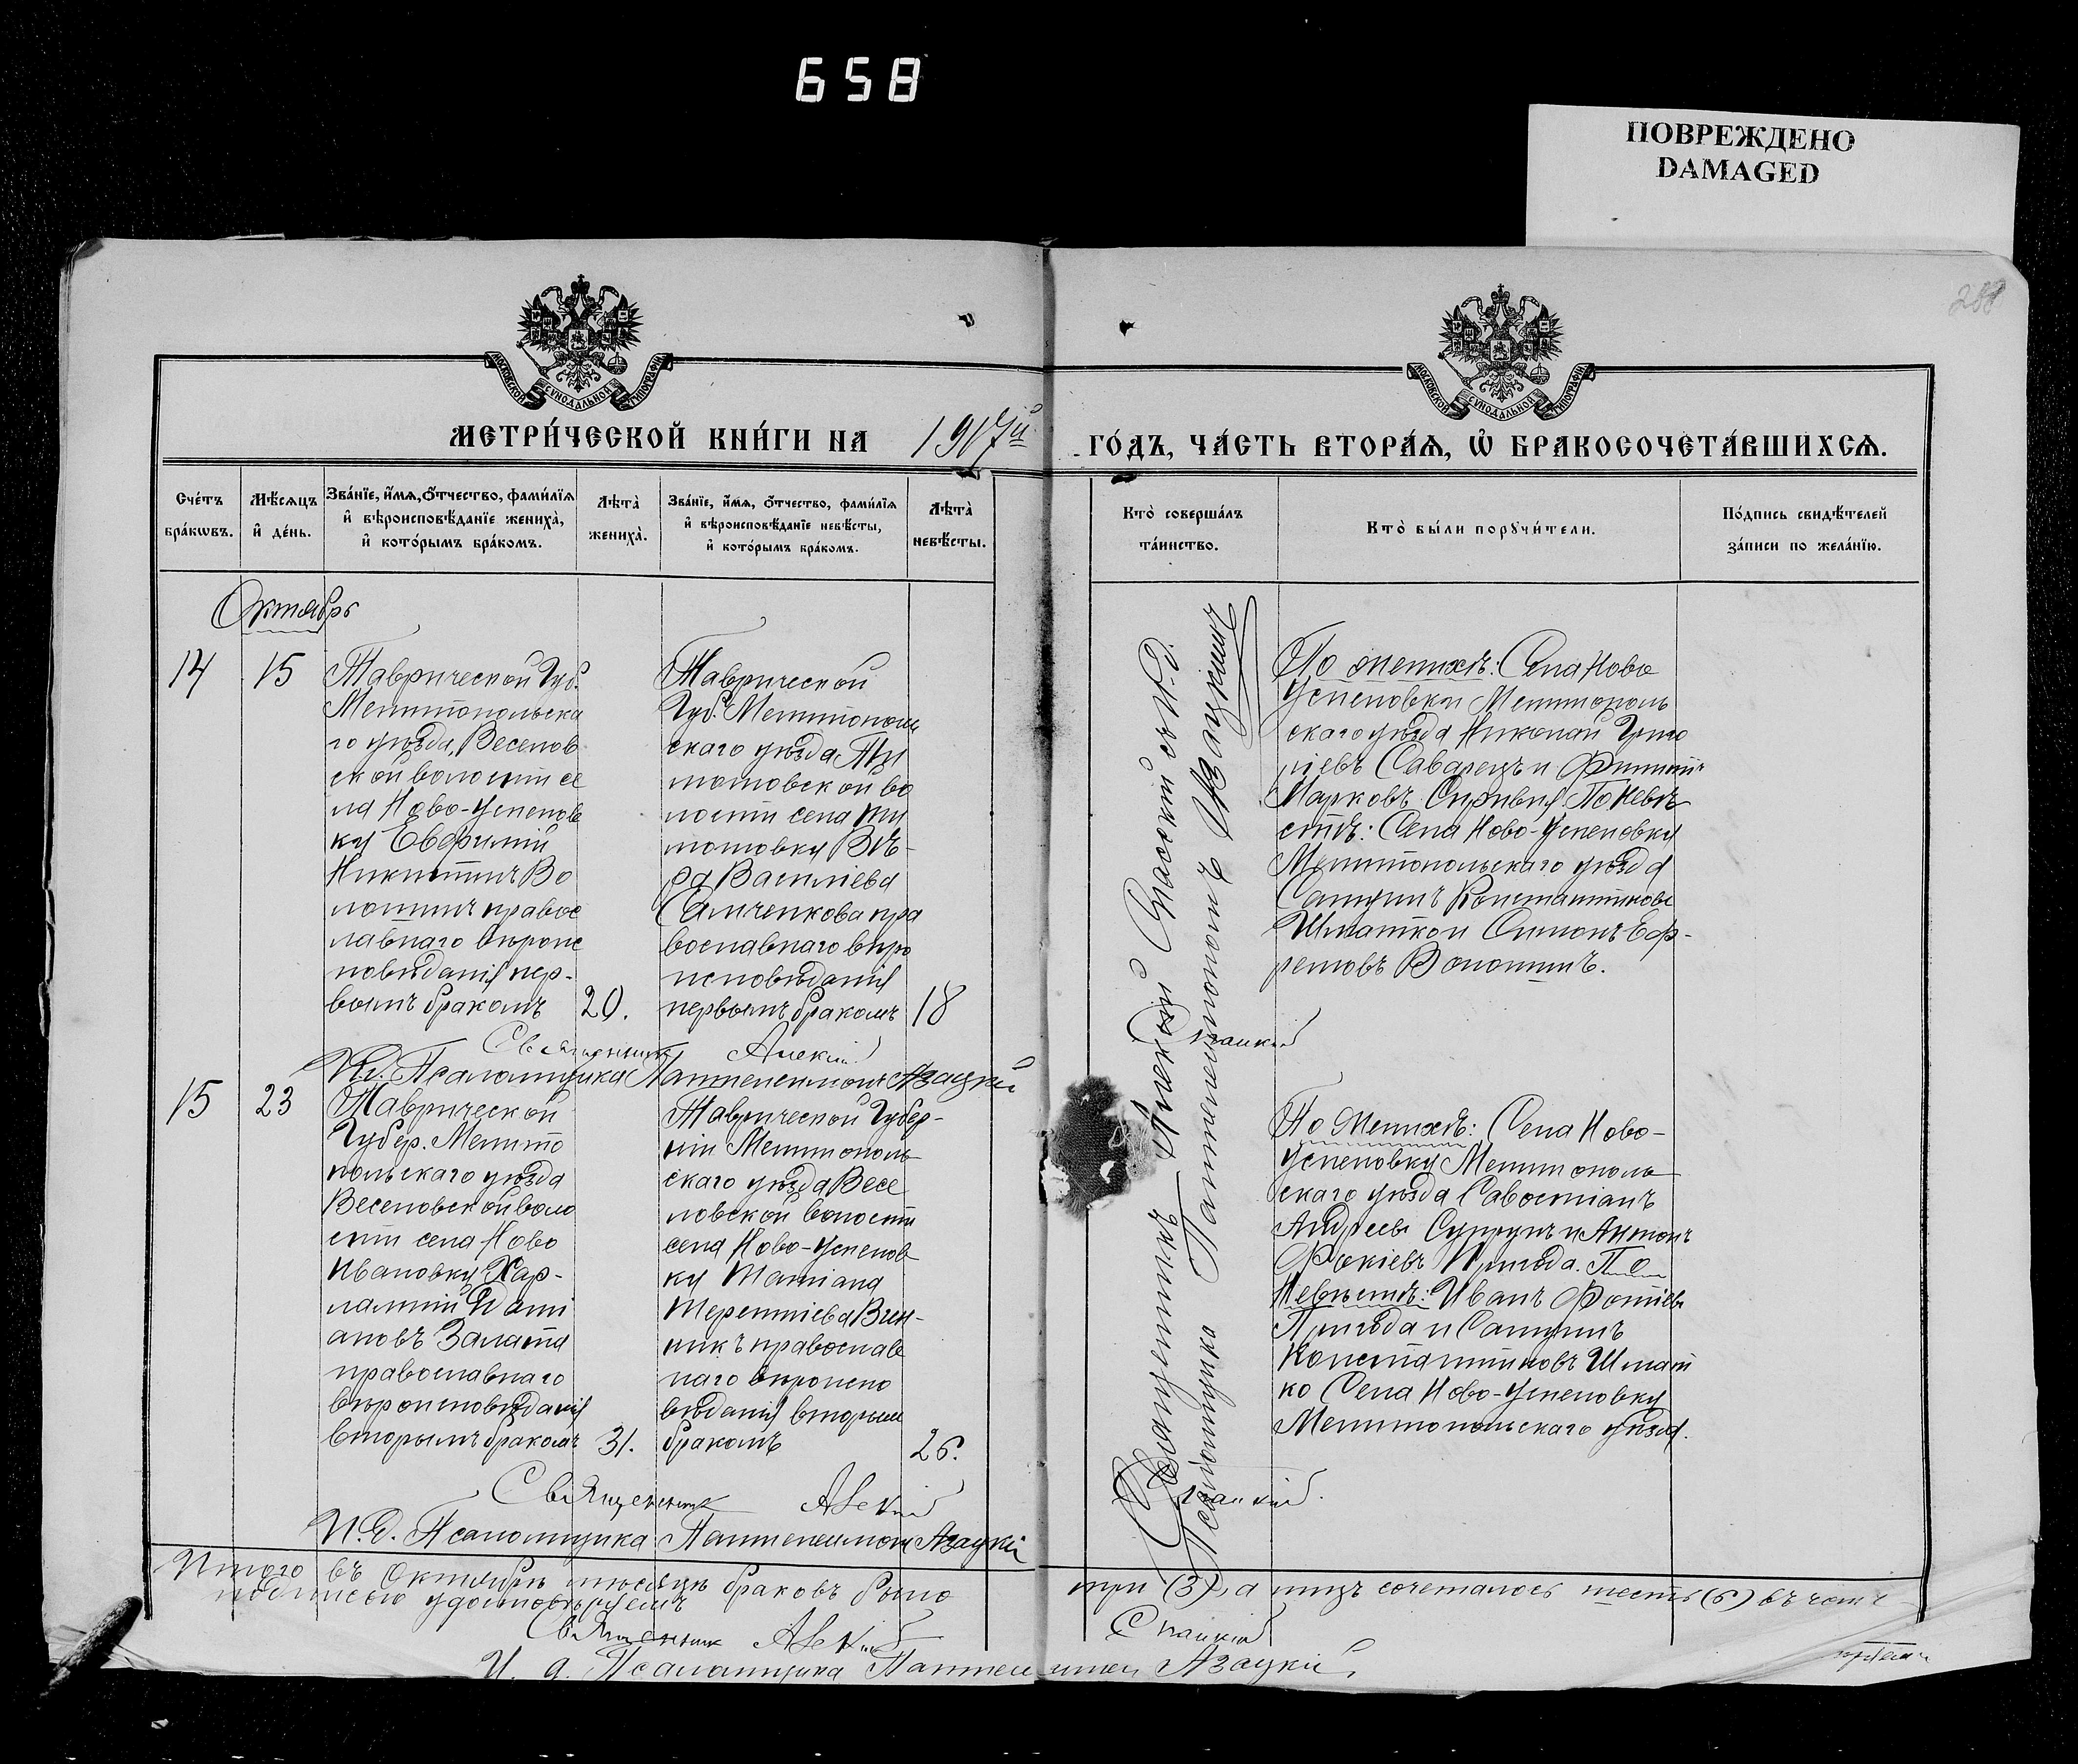 658
ПОВРЕЖДЕНО
DAMAGED
288
МОСКОВСКОЙ СѴНОДАЛЬНОЙ ТИПОГРАФІИ
МОСКОВСКОЙ СѴНОДАЛЬНОЙ ТИПОГРАФІИ
МЕТРИ́ЧЕСКОЙ КНИ́ГИ НА 1907й ГО́ДЪ, ЧА́СТЬ ВТОРА́Я, Ѡ҆ БРАКОСОЧЕТА́ВШИХСѦ.
Сче́тъ
бра́кѡвъ.
Мѣ́сяцъ
и҆ де́нь.
Зва́нїе, и҆́мѧ, ѻ҆́тчество, фами́лїѧ
и҆ вѣроисповѣ́данїе жениха̀,
и҆ кото́рымъ бра́комъ.
Лѣта̀
жениха̀.
Зва́нїе, и҆́мѧ, ѻ҆́тчество, фами́лїѧ
и҆ вѣроисповѣ́данїе невѣ́сты,
и҆ кото́рымъ бра́комъ.
Лѣта̀
невѣ́сты.
Кто̀ соверша́лъ
та́инство.
Кто̀ бы́ли порꙋчи́тели.
По́дпись свидѣ́телей
за́писи по жела́нїю.
Октябрь
14
15
Таврической Губ.
Мелитопольска
го уѣзда, Веселов
ской волости се
ла Ново-Успенов
ки Евфимій
Никитинъ Во
лошинъ правос
лавнаго вѣроис
повѣданія пер-
вымъ бракомъ
20.
Таврической
Губ. Мелитополь
скаго уѣзда
мовской во
лости села
мовки Вѣ-
ра Васильева
Самченкова пра
вославнаго вѣро
исповѣданія
первымъ бракомъ
18
По женихѣ: Села Ново
Успеновки Мелитополь
скаго уѣзда Николай Григо
ріевъ Саварецъ и Филиппъ
Марковъ По невѣ
стѣ: Села Ново-Успеновки
Мелитопольскаго уѣзда
Самуилъ Константиновъ
Шматко и Симонъ Еф-
ремовъ Волошинъ.
Священникъ Алексій Спасскій
И.д. Псаломщика Пантелеимонъ Азацкій
15
23
Таврической
Губер. Мелито
польскаго уѣзда
Веселовской воло
сти села Ново
Ивановки Хар-
лампій Дами
ановъ Залата
православнаго
вѣроисповѣданія
вторымъ бракомъ
31.
Таврической Губер-
ніи Мелитополь
скаго уѣзда Весе
ловской волости
села Ново-Успенов
ки Татіана
Терентіева Вин-
никъ православ
наго вѣроиспо
вѣданія вторымъ
бракомъ
26.
Священникъ Алексій Спасскій и И.д.
Псаломщика Пантелеимонъ Азацкій
По женихѣ: Села Ново-
Успеновки Мелитополь
скаго уѣзда Савостіанъ
Андреевъ Супрунъ и Антонъ
Фокіевъ Пригода. По
Невѣстѣ: Иванъ Фотіевъ
Пригода и Самуилъ
Константиновъ Шмат
ко Села Ново-Успеновки
Мелитопольскаго уѣзда.
Священникъ Алексій Спасскій.
И.д. Псаломщика Пантелеимонъ Азацкій
Итого въ Октябрѣ мѣсяцѣ браковъ было три (3), а лицъ сочеталось шесть (6) въ чемъ
подписью удостовѣряемъ
Священникъ Алексій Спасскій
И.д. Псаломщика Пантелеимонъ Азацкій.